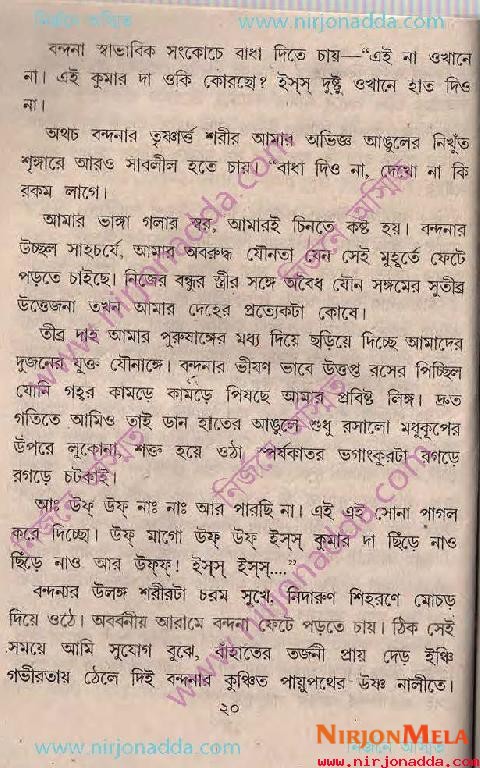 www.nirjonadda.com নির্জনে অস্মিত
বন্দনা স্বাভাবিক সংকোচে বাধা দিতে চায়—“এই না ওখানে
না। এই কুমার দা ওকি কোরছো? ইসস্ দুষ্টু ওখানে হাত দিও
না।
অথচ বন্দনার তৃষ্ণার্ত্ত শরীর আমার অভিজ্ঞ আঙুলের নিখুঁত
শৃঙ্গারে আরও সাবলীল হতে চায়। “বাধা দিও না, দেখো না কি
রকম লাগে।
আমার ভাঙ্গা গলার স্বর, আমারই চিনতে কষ্ট হয়। বন্দনার
উচ্ছল সাহচর্যে, আমার অবরুদ্ধ যৌনতা যেন সেই মুহূর্তে ফেটে
পড়তে চাইছে। নিজের বন্ধুর স্ত্রীর সঙ্গে অবৈধ যৌন সঙ্গমের সুতীব্র
উত্তেজনা তখন আমার দেহের প্রত্যেকটা কোষে।
তীব্র দাহ আমার পুরুষাঙ্গের মধ্য দিয়ে ছড়িয়ে দিচ্ছে আমাদের
দুজনের যুক্ত যৌনাঙ্গে। বন্দনার ভীষণ ভাবে উত্তপ্ত রসের পিচ্ছিল
যোনি গহ্বর কামড়ে কামড়ে পিষছে আমার প্রবিষ্ট লিঙ্গ। দ্রুত
গতিতে আমিও তাই ডান হাতের আঙুলে শুধু রসালো মধুকূপের
উপরে লুকোনা, শক্ত হয়ে ওঠা স্পর্শকাতর ভগাংকুরটা রগড়ে
রগড়ে চটকাই।
আঃ উফ্ উফ্ নাঃ নাঃ আর পারছি না। এই এই সোনা পাগল
করে দিচ্ছো। উফ্ মাগো উফ্ উফ্ ইস্স্ কুমার দা ছিঁড়ে নাও
ছিঁড়ে নাও আর উফফ্! ইস্স্ ইস্স্...”
বন্দনার উলঙ্গ শরীরটা চরম সুখে, নিদারুণ শিহরণে মোচড়
দিয়ে ওঠে। অবর্বনীয় আরামে বন্দনা ফেটে পড়তে চায়। ঠিক সেই
সময়ে আমি সুযোগ বুঝে, বাঁহাতের তর্জনী প্রায় দেড় ইঞ্চি
গভীরতায় ঠেলে দিই বন্দনার কুঞ্চিত পায়ুপথের উষ্ণ নালীতে।
২০
NIRJONMELA
www.nirjonadda.com নির্জনে অস্মিত
www.nirjonadda.com